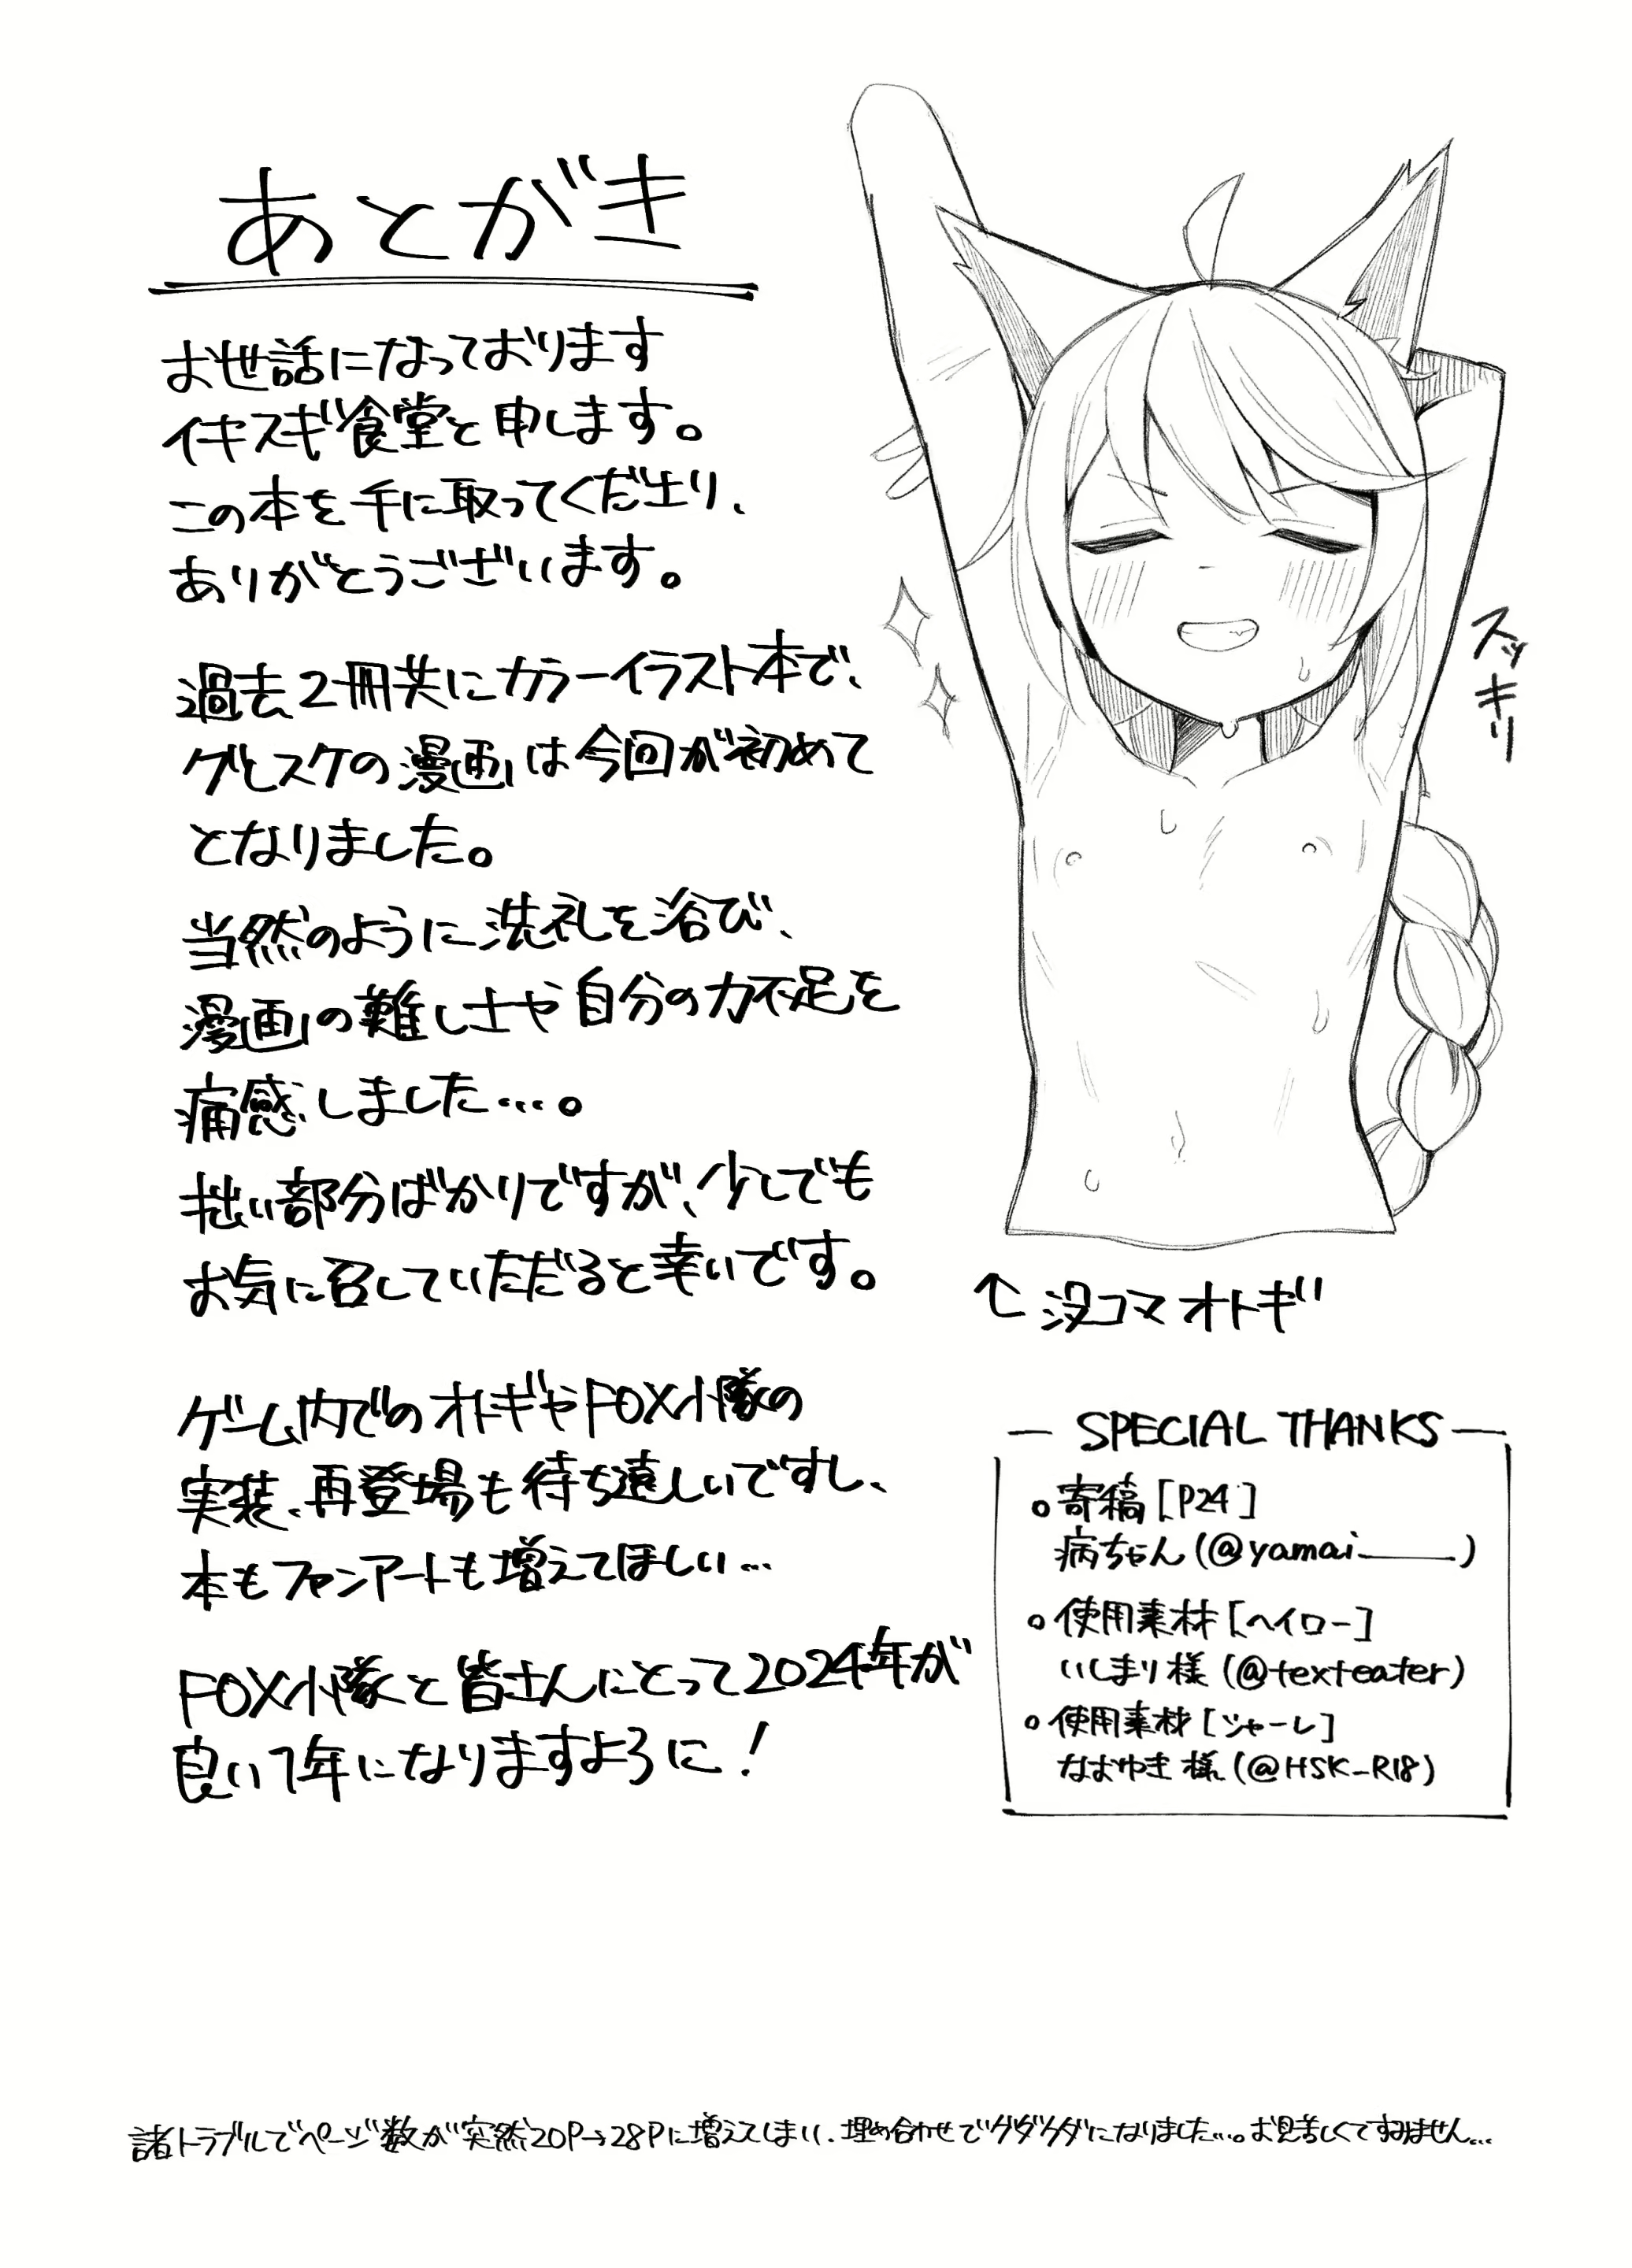 あとがき
お世話になっております
イキスギ食堂と申します。
この本を手に取ってくださり、
ありがとうございます。
過去2冊共にカラーイラスト本で、
グヒスケの漫画は今回が初めて
となりました。
当然のように洗礼を浴び、
漫画の難しさや自分の力不足を
痛感しました…。
拙い部分ばかりですが、少しでも
お気に召していただると幸いです。
ゲーム内でのオトギやFOX小隊の
実装、再登場も待ち遠しいですし、
本もファンアートも増えてほしい…
FOX小隊と皆さんにとって2024年が
良い1年になりますように!
スッキリ
↑没コマオトギ
SPECIAL THANKS
○寄稿[P24]
病ちゃん(@yamai______)
○使用素材[ヘイロー]
いしまり様(@texteater)
○使用素材[シャーレ]
なおゆき様(@HSK_R18)
諸トラブルでページ数が突然20P→28Pに増えてしまい、埋め合わせでグダグダになりました…。お見苦しくてすみません…